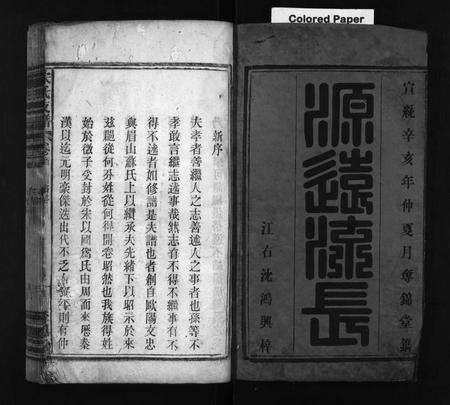 Colored Paper
宣統辛亥年仲夏月奪錦堂鐫
源遠流長
江右沈鴻興梓
新序
夫孝者善繼人之志善述人之事者也孫等不
孝敢言繼志述事哉然志有不得不繼事有不
得不述者如修譜是夫譜也者創自歐陽文忠
與眉山蘇氏上以纘承夫先緒下以昭示於來
茲閱從何系姓從何得開卷昭然也我族得姓
始於微子受封於宋以國為氏由周而來歷秦
漢以迄元明豪傑迭出代不乏人
則有仲